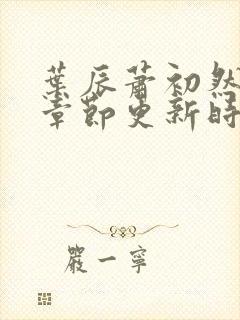 葉辰蕭初然
章節更新時
嚴一寧